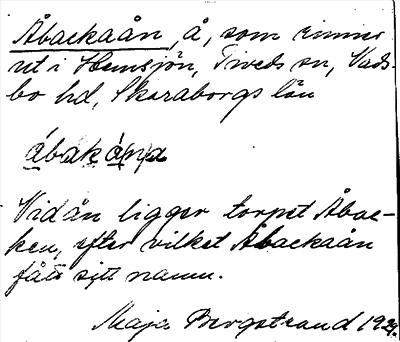 Åbackaån, å, som rinner
ut i Hemsjön, Tiveds sn, Vads-
bo hd, Skaraborgs län
åbakåna
Vid ån ligger torpet Åbac-
ken, efter vilket Åbackaån
fått sitt namn.
Maja Bergstrand 1929.